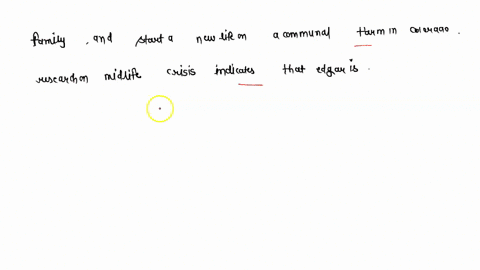 family , and start a new life on a communal farm in colorado .
research on midlife crisis indicates that edgar is .